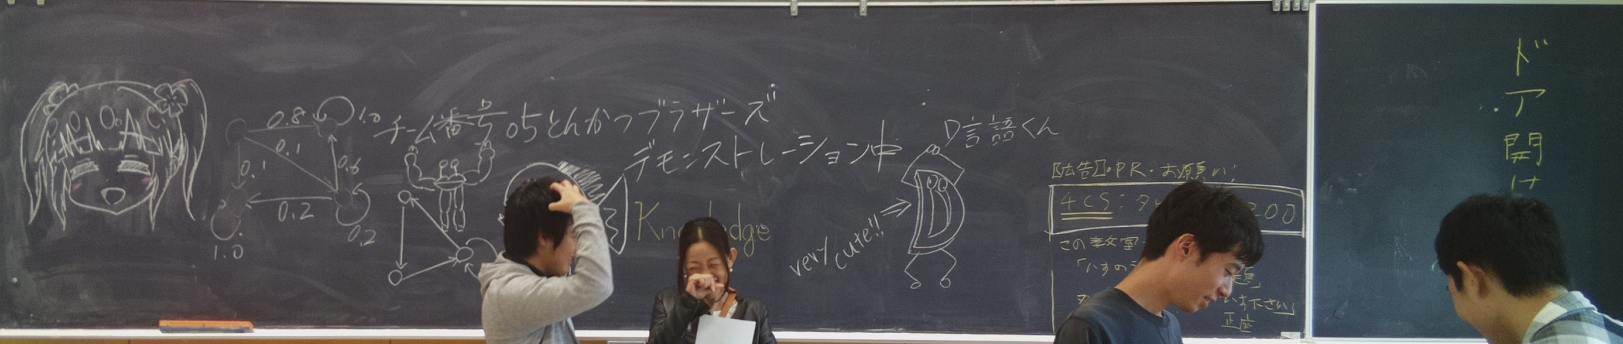 0.8
1.0
0.1
0.1
0.6
0.2
0.2
1.0
チーム番号05とんかつブラザーズ
デモンストレーション中
Knowledge
D言語くん
very cute!!
【広告】・PR・お願い
4CS:
200
この教室
い下さい」
正座
ドア開け